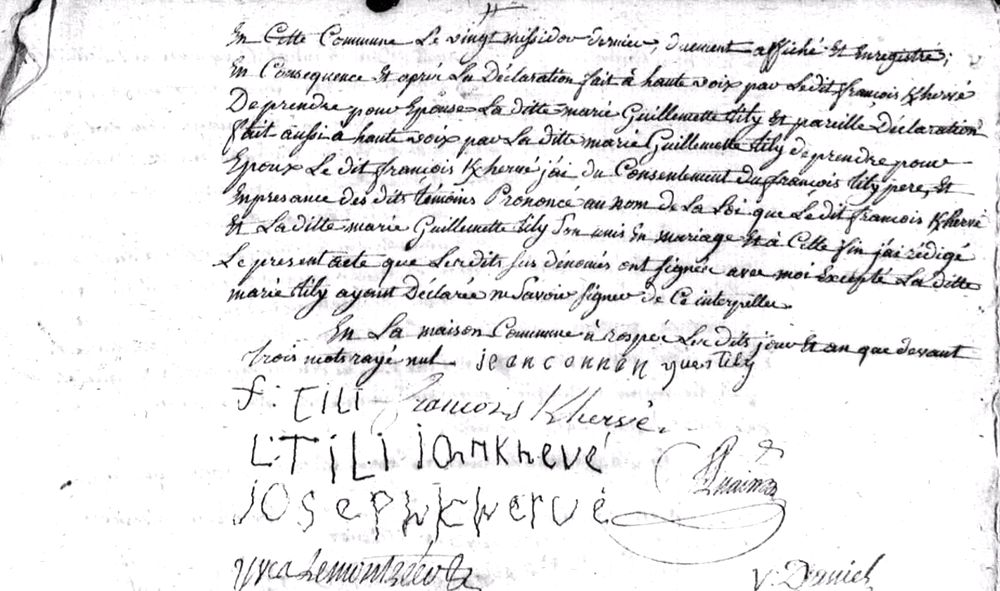 En Cette Commune Le vingt messidor dernier, duement affiché Et Enregistré;
En Consequence Et après La Déclaration fait à haute voix par Ledit françois Khervé
De prendre pour Epouse La ditte marie Guillemette tily Et pareille Déclaration
fait aussi a haute voix par La ditte marie Guillemette tily de prendre pour
Epoux Le dit françois Khervé j'ai du Consentement du françois tily pere, Et
En presance des dits témoins Prononcé au nom de La Loi que Ledit françois Khervé
Et La ditte marie Guillemette tily Son unis En mariage Et à Cette fin j'ai rédigé
Le present acte que Lesdits sus dénomés ont signée avec moi Excepté La ditte
marie tily ayant Déclarée ne Savoir signer de Ce interpeller
En La maison Commune à rospez Les dits jour Et an que devant
trois mots rayé nul jean connen yves tily
f: TILI françois Khervé
L: TILI jan Khevé
joseph Khervé
yves
y. Daniel